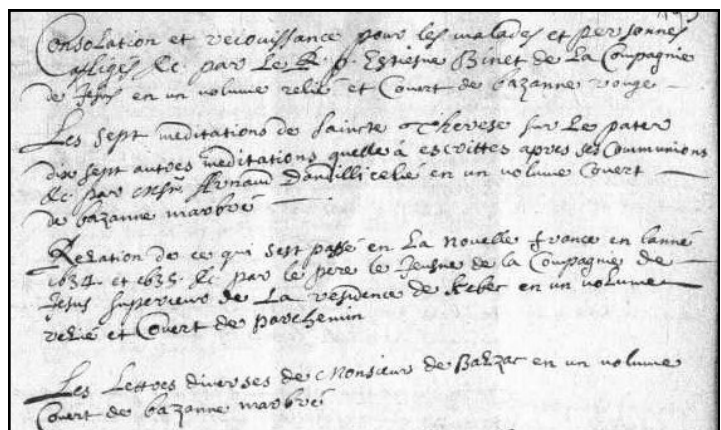 Consolation et reiouissance pour les malades et personnes
afligés &c. par Le R. p. Estiesne Binet de La Compagnie
de Jesus en un volume relié et Couert de bazanne rouge
Les sept meditations de saincte Therese sur Le pater
dix sept autres meditations quelle à escrittes apres ses Communions
&c. par Arnaud Dandilli relié en un volume Couert
de bazanne marbré
Relation de ce qui sest passé en La Nouvelle france en lanné
1634. et 1635. &c par le pere le Jeusne de la Compagnie de
Jesus superieur de La residence de Kebec en un volume
relié et Couert de parchemin
Les Lettres diverses de Monsieur de Balzac en un volume
Couert de bazanne marbré